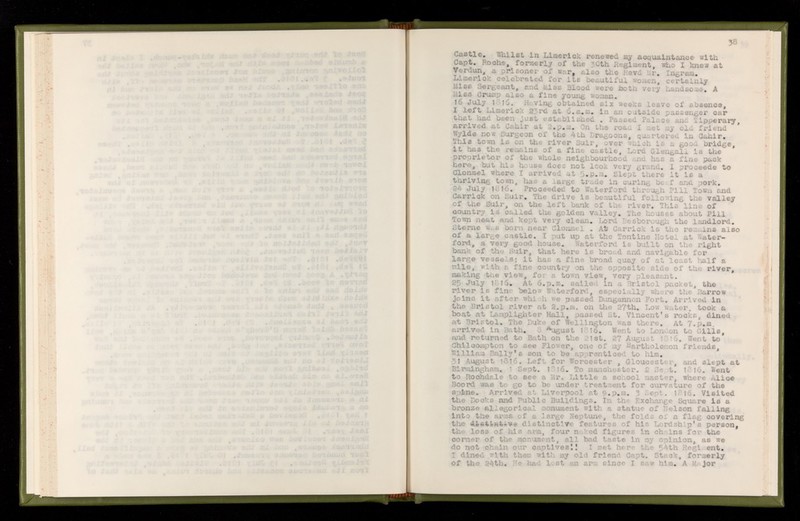 38
Castle. Whilst in Limerick renewed my acquaintance with
Capt. Roche, formerly of the 30th Regiment, who I knew at
Verdun, a prisoner of war, also the Revd Mr. Ingram.
Limerick celebrated for its beautiful women, certainly
Miss Sergeant, and Miss Blood were both very handsome. A
Miss Crump also a fine young woman.
16 July 1816. Having obtained six weeks leave of absence,
I left Limerick 23rd at 6.a.m. in an outside passenger car
that had been just established . Passed Palace and Tipperary,
arrived at Cahir at 2.p.m. On the road I met my old friend
Wylde now Surgeon of the 4th Dragoons, quartered in Cahir.
This town is on the river Suir, over which is a good bridge,
it has the remains of a fine castle, Lord Glengall is the
proprietor of the whole neighbourhood and has a fine pack
here, but his house does not look very grand. I proceede to
Clonmel where I arrived at 5.p.m. Slept there it is a
thriving town, has a large trade in curing beef and pork.
24 July 1816. Proceeded to Waterford through Pill Town and
Carrick on Suir. The drive is beautiful following the valley
of the Suir, on the left bank of the river. This line of
country is called the golden valley. The houses about Pill
Town neat and kept very clean. Lord Besborough the landlord.
Sterne was born near Clonmel . At Carrick is the remains also
of a large castle. I put up at the Pontine Hotel at Water-
ford, a very good house. Waterford is built on the right
bank of the Suir, that here is broad and navigable for
large vessels; it has a fine broad quay of at least half a
mile, with a fine country on the opposite side of the river,
making the view, for a town view, very pleasant.
25 July 1816. At 6.p.m. sailed in a Bristol packet, the
river is fine below Waterford, expecially where the Barrow
joins it after which we passed Dungannon Fort. Arrived in
the Bristol river at 2.p.m. on the 27th. Low water, took a
boat at Lamplighter Hall, passed St. Vincent's rocks, dined
at Bristol. The Duke of Wellington was there. At 7.p.m
arrived in Bath. August 1816. Went to London to Gills,
and returned to Bath on the 21st. 27 August 1816. Went to
Chilcompton to see Flower, one of my Bartholemon friends,
William Bally's son to be apprenticed to him.
31 August 1816. Left for Worcester , Gloucester, and slept at
Birmingham. 1 Sept. 1816. To manchester. 2 Sept. 1816. Went
to Rochdale to see a Mr. Little a school master, where Alice
Boord was to go to be under treatment for curvature of the
spine. Arrived at Liverpool at 6.p.m. 3 Sept. 1816. Visited
the Docks and Public Buildings. In the Exchange Square is a
bronze allegorical monument with a statue of Nelson falling
into the arms of a large Neptune, the folds of a flag covering
the distintive distinctive features of his Lordship's person,
the loss of his arm, four naked figures in chains for the
corner of the monument, all bad taste in my opinion, as we
do not chain our captives!! I met here the 54th Regiment.
I dined with them with my old friend Capt. Stack, formerly
of the 24th. He had lost an arm since I saw him. A Major